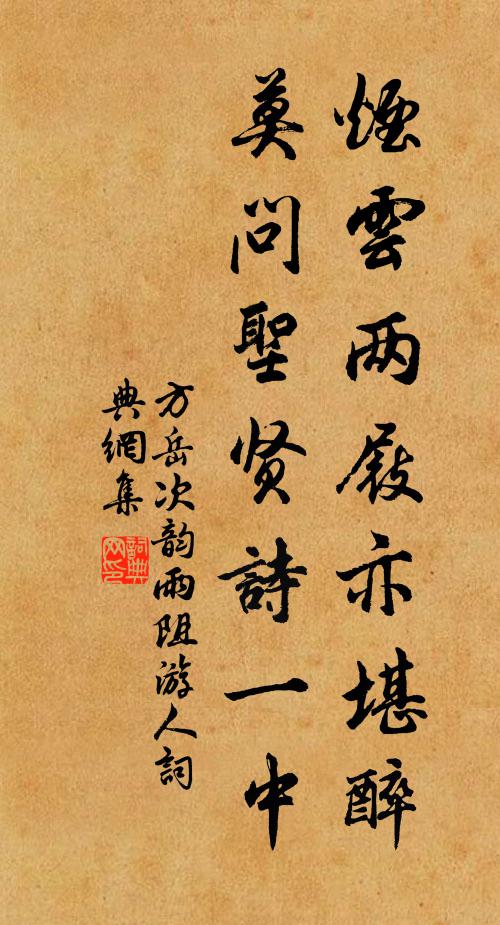 煙雲两屐亦堪醉
莫问聖贤詩一中
方岳次韵雨阻游人詞
典網集
詞典
网印